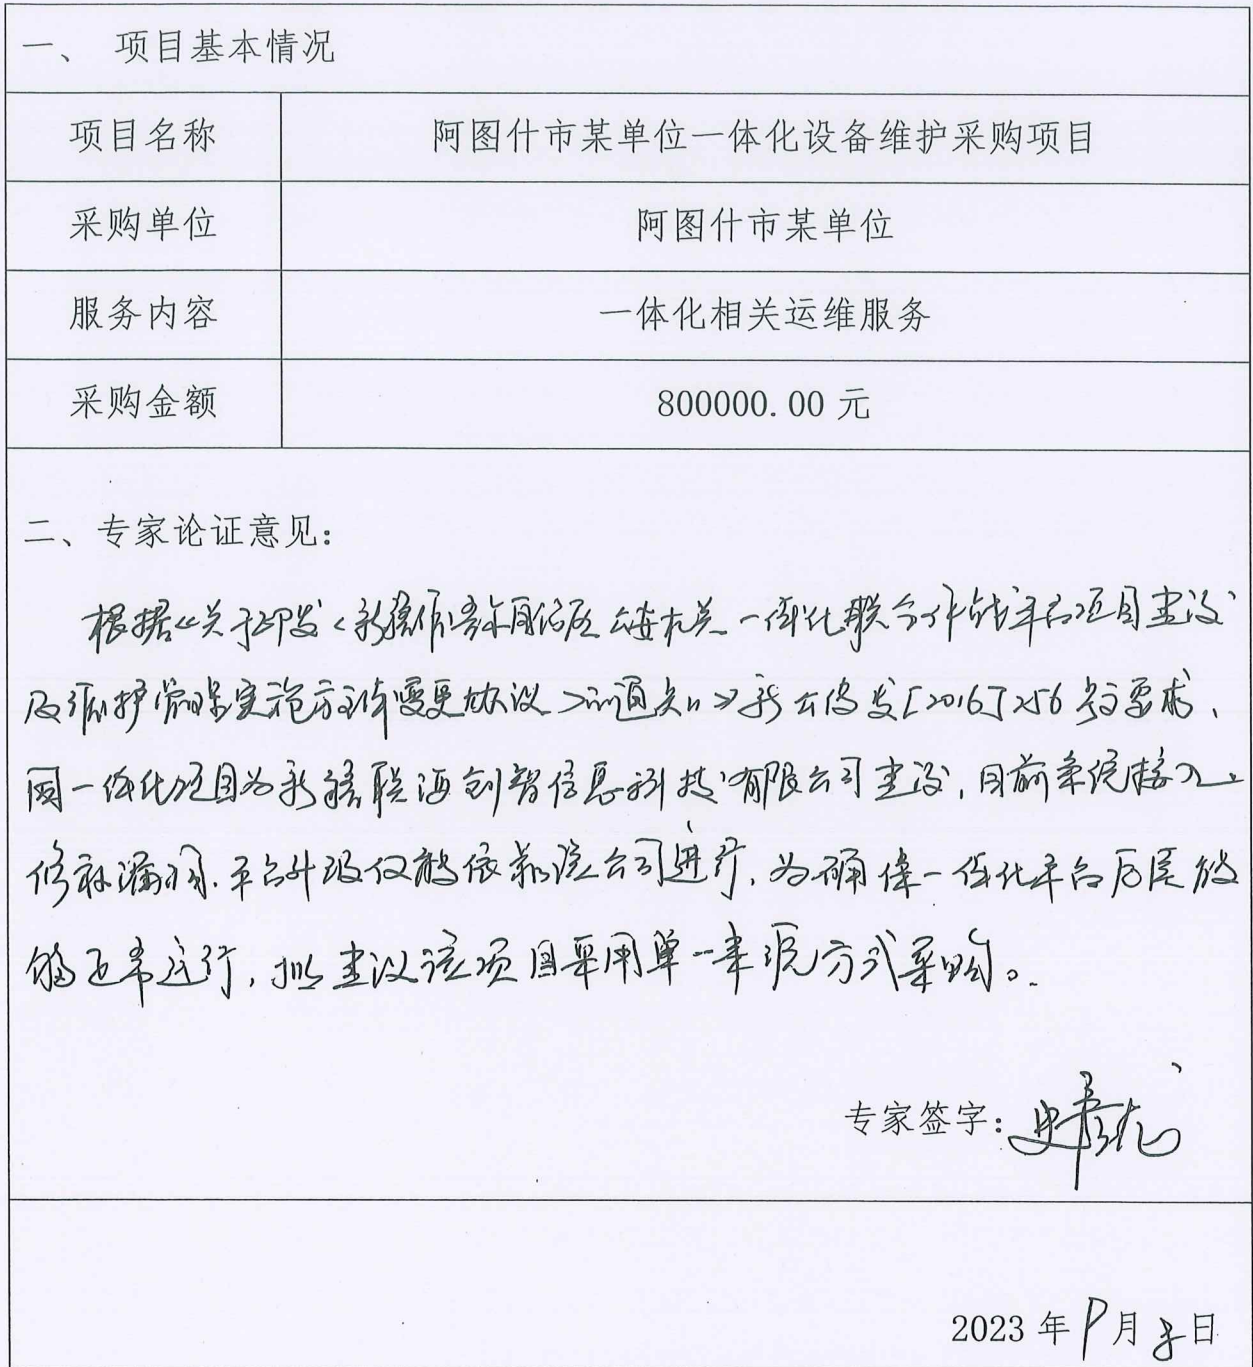 一、 项目基本情况
项目名称 阿图什市某单位一体化设备维护采购项目
采购单位 阿图什市某单位
服务内容 一体化相关运维服务
采购金额 800000.00 元
二、专家论证意见:
根据《关于印发<新疆维吾尔自治区公安机关一体化联合作战平台项目建设
及维护实施方案变更协议>的通知》新公传发[2016]256号文要求,
因一体化项目为新疆联海创智信息科技有限公司建设,目前系统接入、
修补漏洞、平台升级仅能依靠该公司进行,为确保一体化平台后续能
够正常运行,拟建议该项目采用单一来源方式采购。
专家签字:
2023 年 9月 日